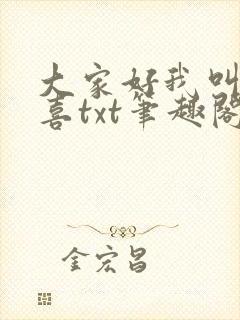 大家好我叫
喜txt笔趣阁
金宏昌